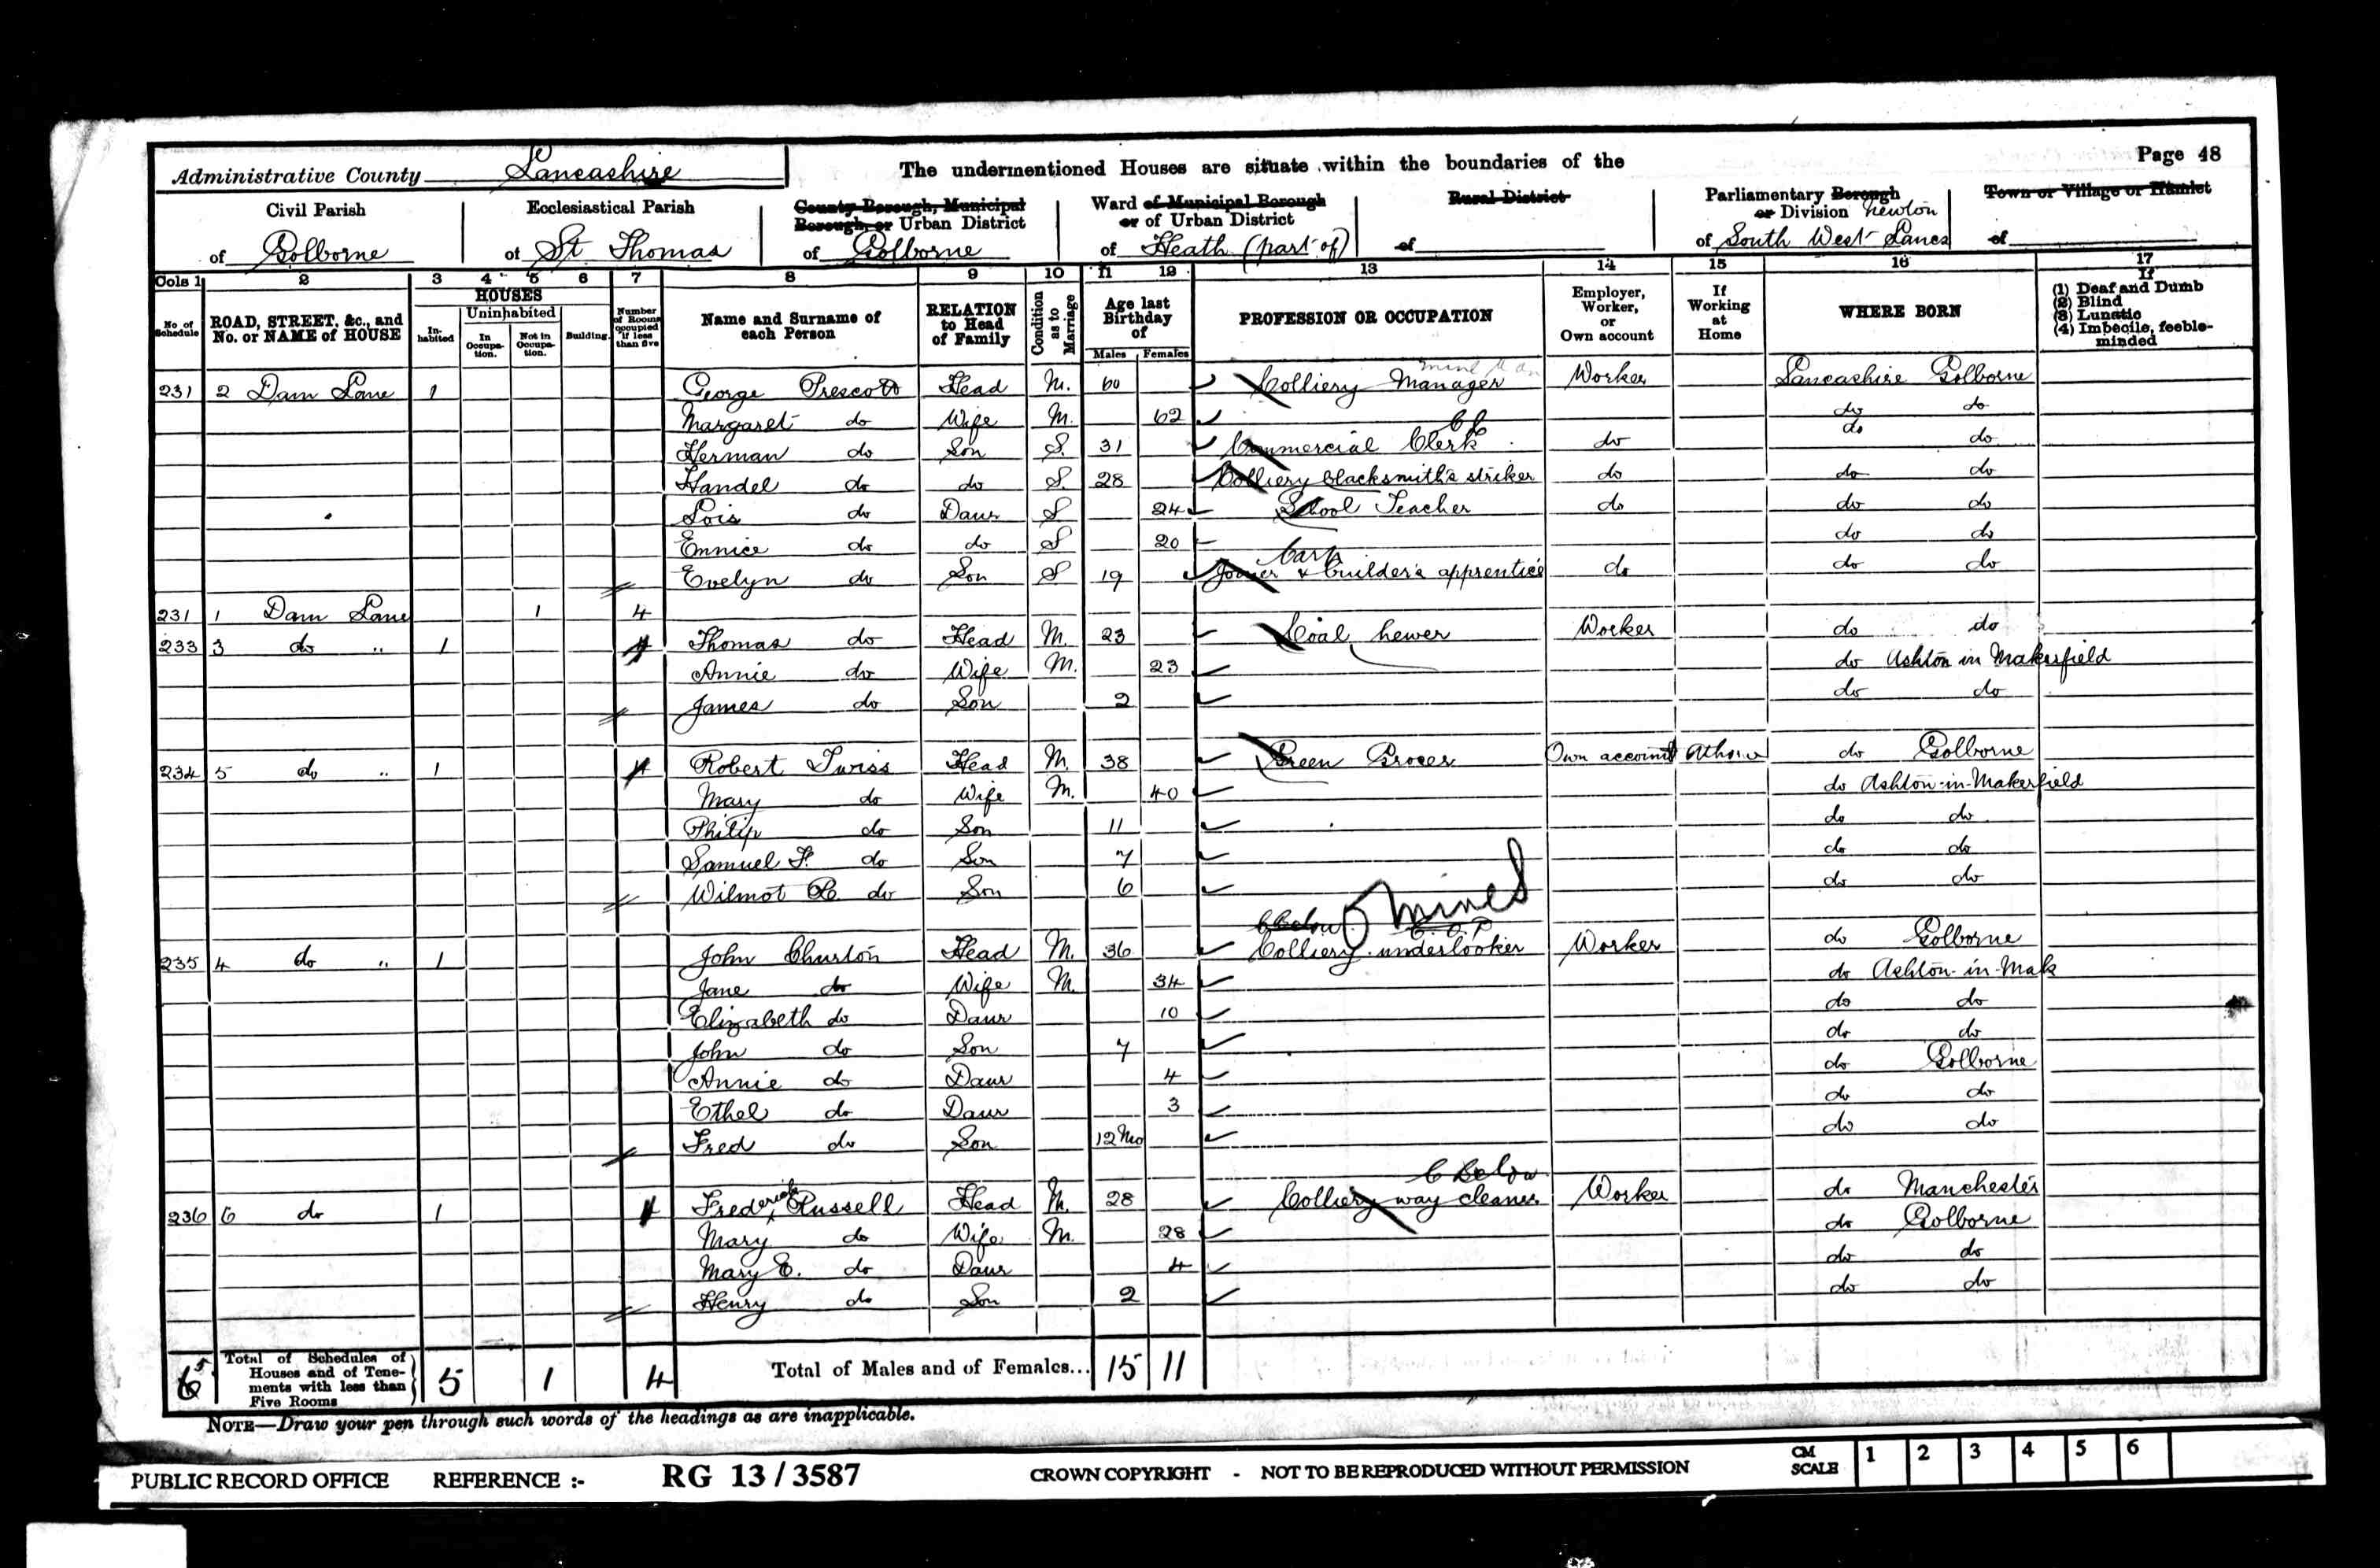 Page 48
Administrative County Lancashire The undermentioned Houses are situate within the boundaries of the
Civil Parish of Golborne
Ecclesiastical Parish of St Thomas
County Borough, Municipal Borough, or Urban District of Golborne
Ward of Municipal Borough or of Urban District of Heath (part of)
Rural District of
Parliamentary Borough or Division Newton of South West Lancs
Town or Village or Hamlet of
Cols 1 2 3 4 5 6 7 8 9 10 11 12 13 14 15 16 17
No of Schedule
ROAD, STREET, &c., and No. or NAME of HOUSE
HOUSES
Inhabited
Uninhabited
In Occupation.
Not in Occupation.
Building.
Number of Rooms occupied if less than five
Name and Surname of each Person
RELATION to Head of Family
Condition as to Marriage
Age last Birthday of
Males Females
PROFESSION OR OCCUPATION
Employer, Worker, or Own account
If Working at Home
WHERE BORN
If
(1) Deaf and Dumb
(2) Blind
(3) Lunatic
(4) Imbecile, feeble-minded
231 2 Dam Lane 1 George Prescott Head M. 60 Colliery Manager Worker Lancashire Golborne
Margaret do Wife M. 62 do do
Herman do Son S. 31 Commercial Clerk do do do
Handel do do S. 28 Colliery blacksmith's striker do do do
Lois do Daur S 24 School Teacher do do do
Ennice do do S 20 do do
Carp
Evelyn do Son S 19 Joiner & builder's apprentice do do do
231 1 Dam Lane 1 4
233 3 do " 1 4 Thomas do Head M. 23 Coal hewer Worker do do
Annie do Wife M. 23 do Ashton in Makerfield
James do Son 2 do do
234 5 do " 1 4 Robert Twiss Head M. 38 Green Grocer Own account At home do Golborne
Mary do Wife M. 40 do Ashton-in-Makerfield
Philip do Son 11 do do
Samuel F. do Son 7 do do
Wilmot R do Son 6 do do
Mines
235 4 do " 1 John Churton Head M. 36 Colliery underlooker Worker do Golborne
Jane do Wife M. 34 do Ashton-in-Mak
Elizabeth do Daur 10 do do
John do Son 7 do do
Annie do Daur 4 do Golborne
Ethel do Daur 3 do do
Fred do Son 12 Mo do do
C Below
236 6 do 1 4 Frederick Russell Head M. 28 Colliery way cleaner Worker do Manchester
Mary do Wife M. 28 do Golborne
Mary E. do Daur 4 do do
Henry do Son 2 do do
Total of Schedules of Houses and of Tenements with less than Five Rooms 5 1 4 Total of Males and of Females... 15 11
NOTE—Draw your pen through such words of the headings as are inapplicable.
PUBLIC RECORD OFFICE REFERENCE :- RG 13 / 3587 CROWN COPYRIGHT - NOT TO BE REPRODUCED WITHOUT PERMISSION CM SCALE 1 2 3 4 5 6